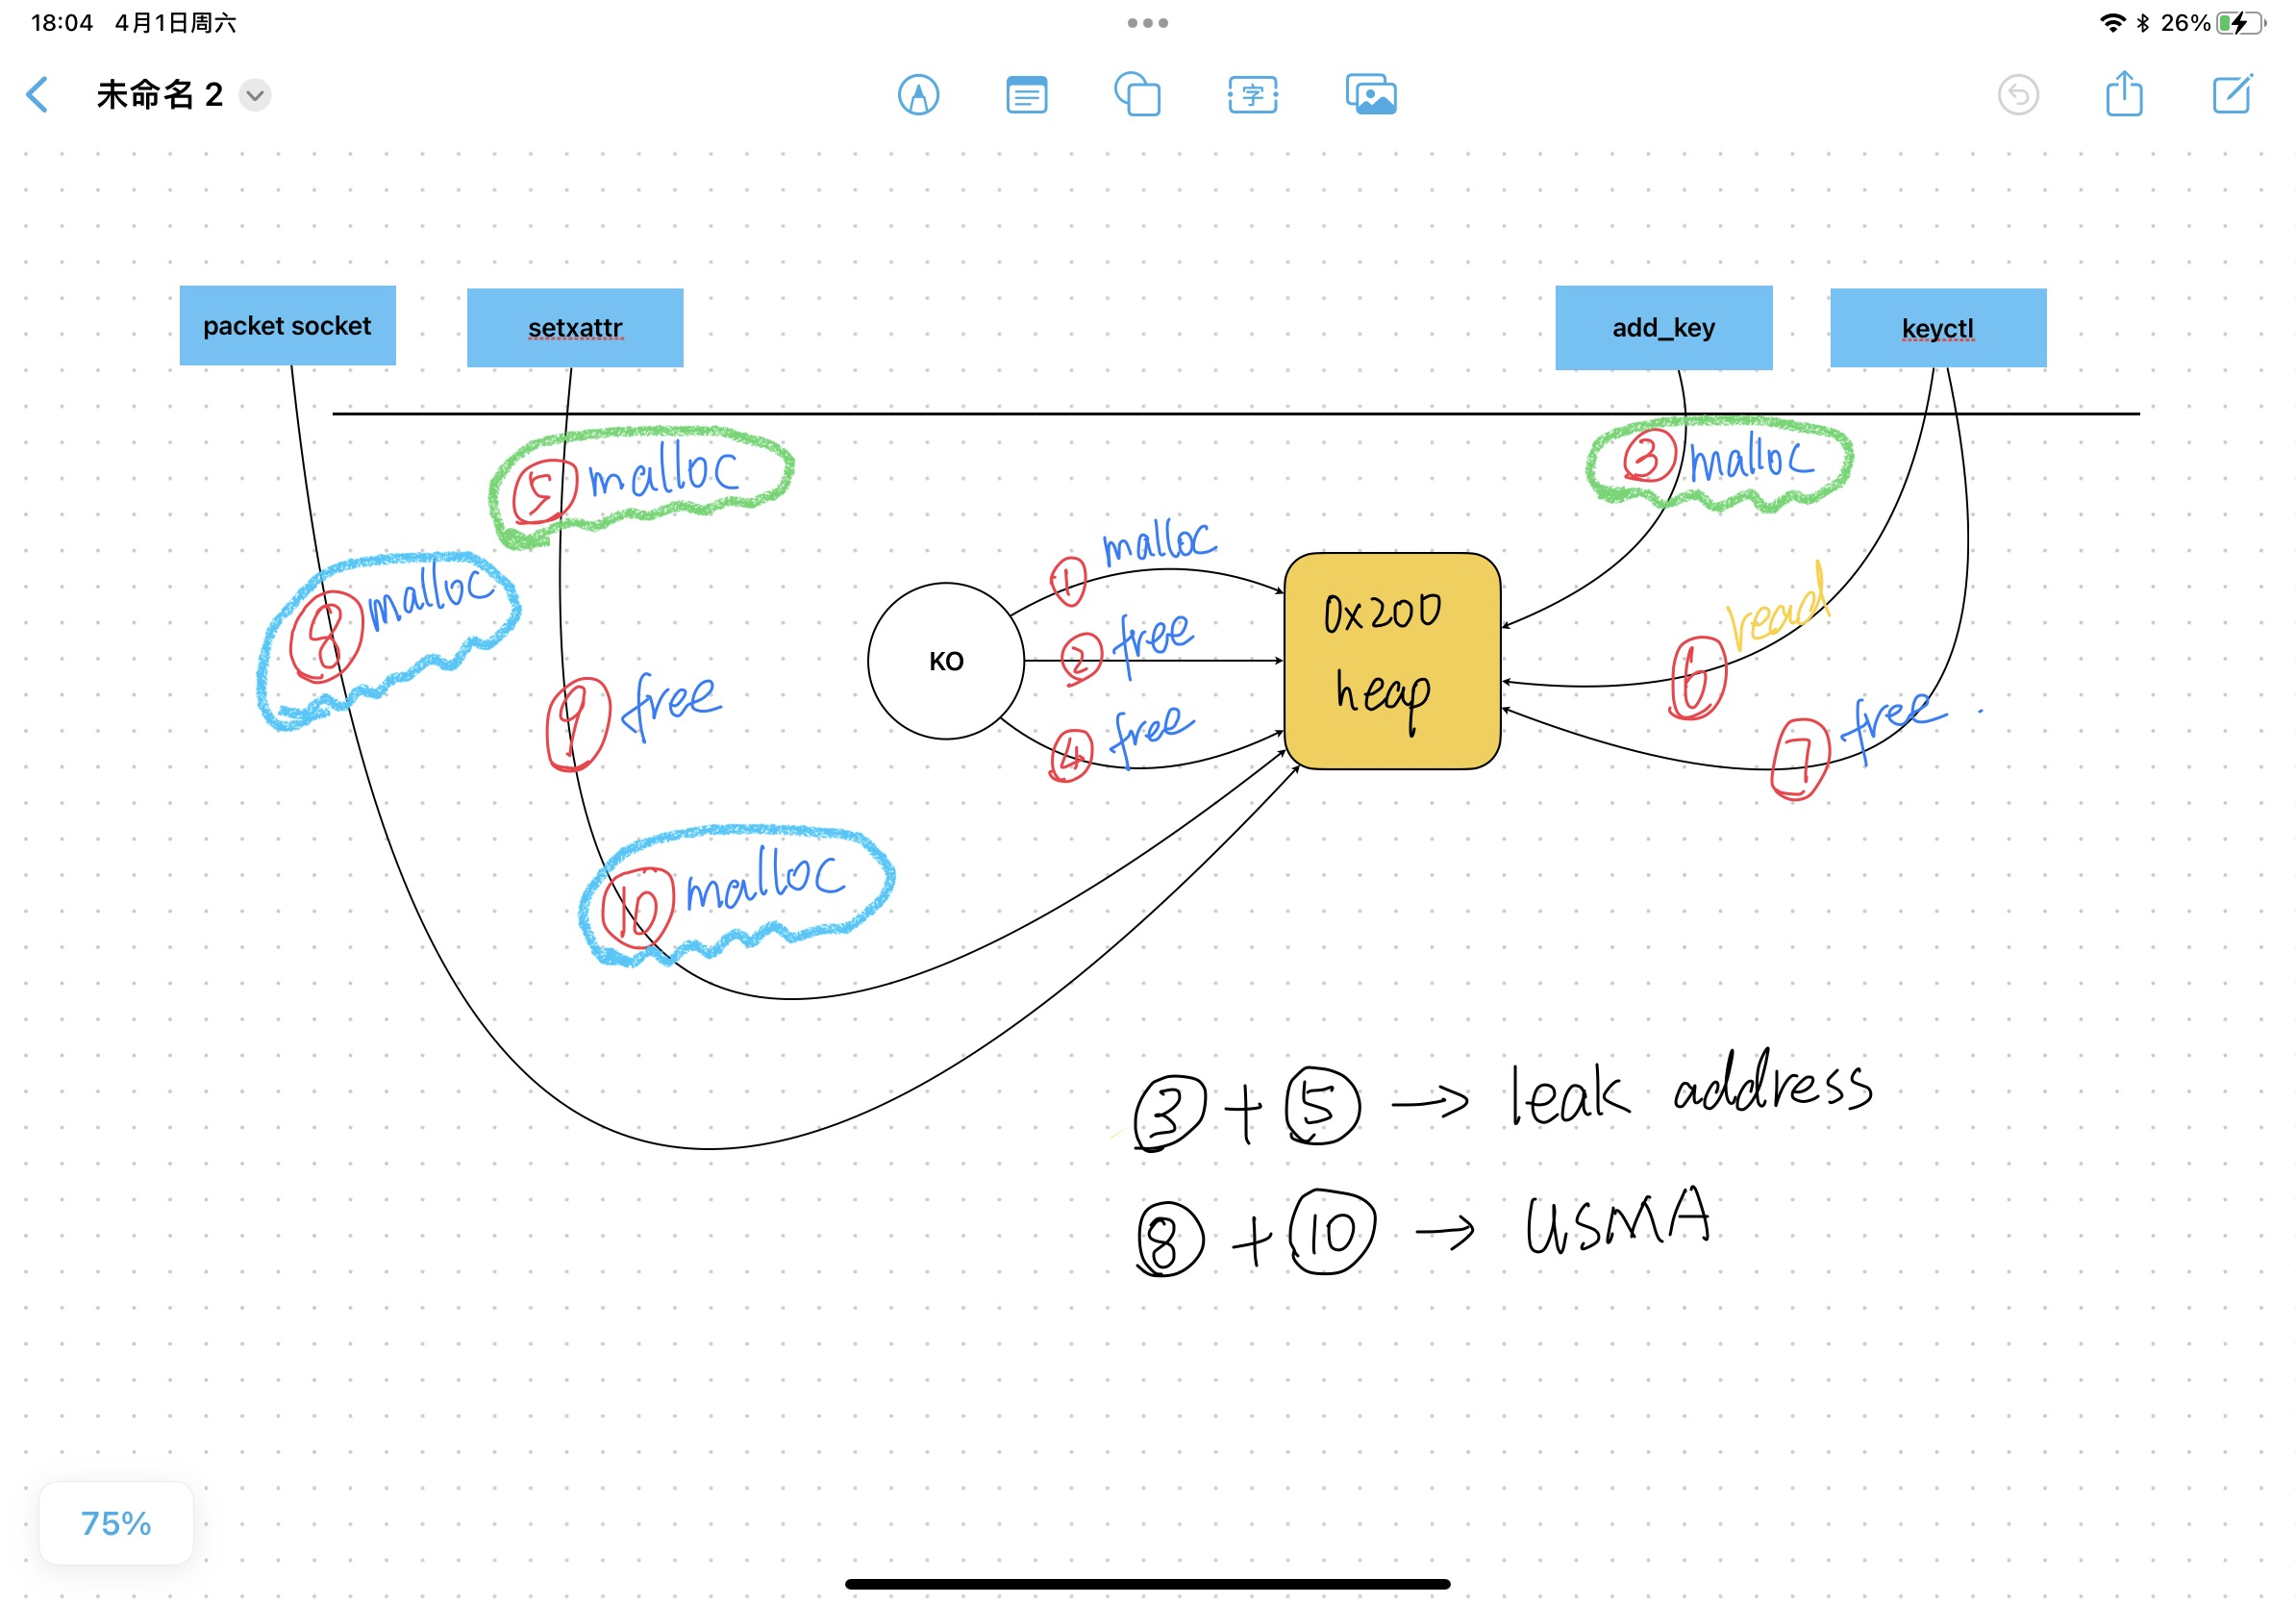 18:04 4月1日周六
26%
未命名 2
字
packet socket
setxattr
add_key
keyctl
⑤ malloc
③ malloc
⑧ malloc
① malloc
② free
④ free
KO
0x200
heap
read
⑥
⑦ free
⑨ free
⑩ malloc
③ + ⑤ → leak address
⑧ + ⑩ → USMA
75%